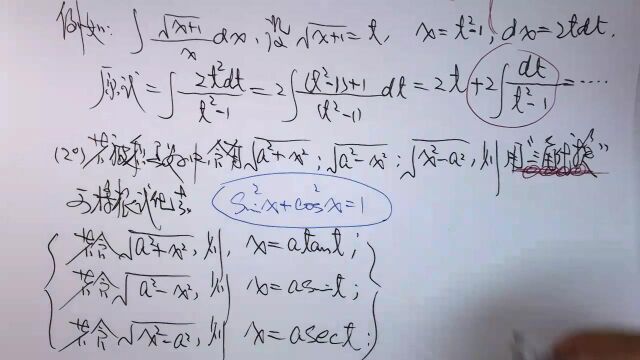 例如: ∫ √(x+1)/x dx, 设 √(x+1) = t, x = t²-1, dx = 2tdt.
原式 = ∫ 2t²dt/(t²-1) = 2∫ ((t²-1)+1)/(t²-1) dt = 2t + 2∫ dt/(t²-1) = ……
(2°) 若被积函数中含有 √(a²+x²); √(a²-x²); √(x²-a²), 则用“三角代换”
sin²x+cos²x=1
若含 √(a²+x²), 则, x = atant;
若含 √(a²-x²), 则 x = asint;
若含 √(x²-a²), 则 x = asect;